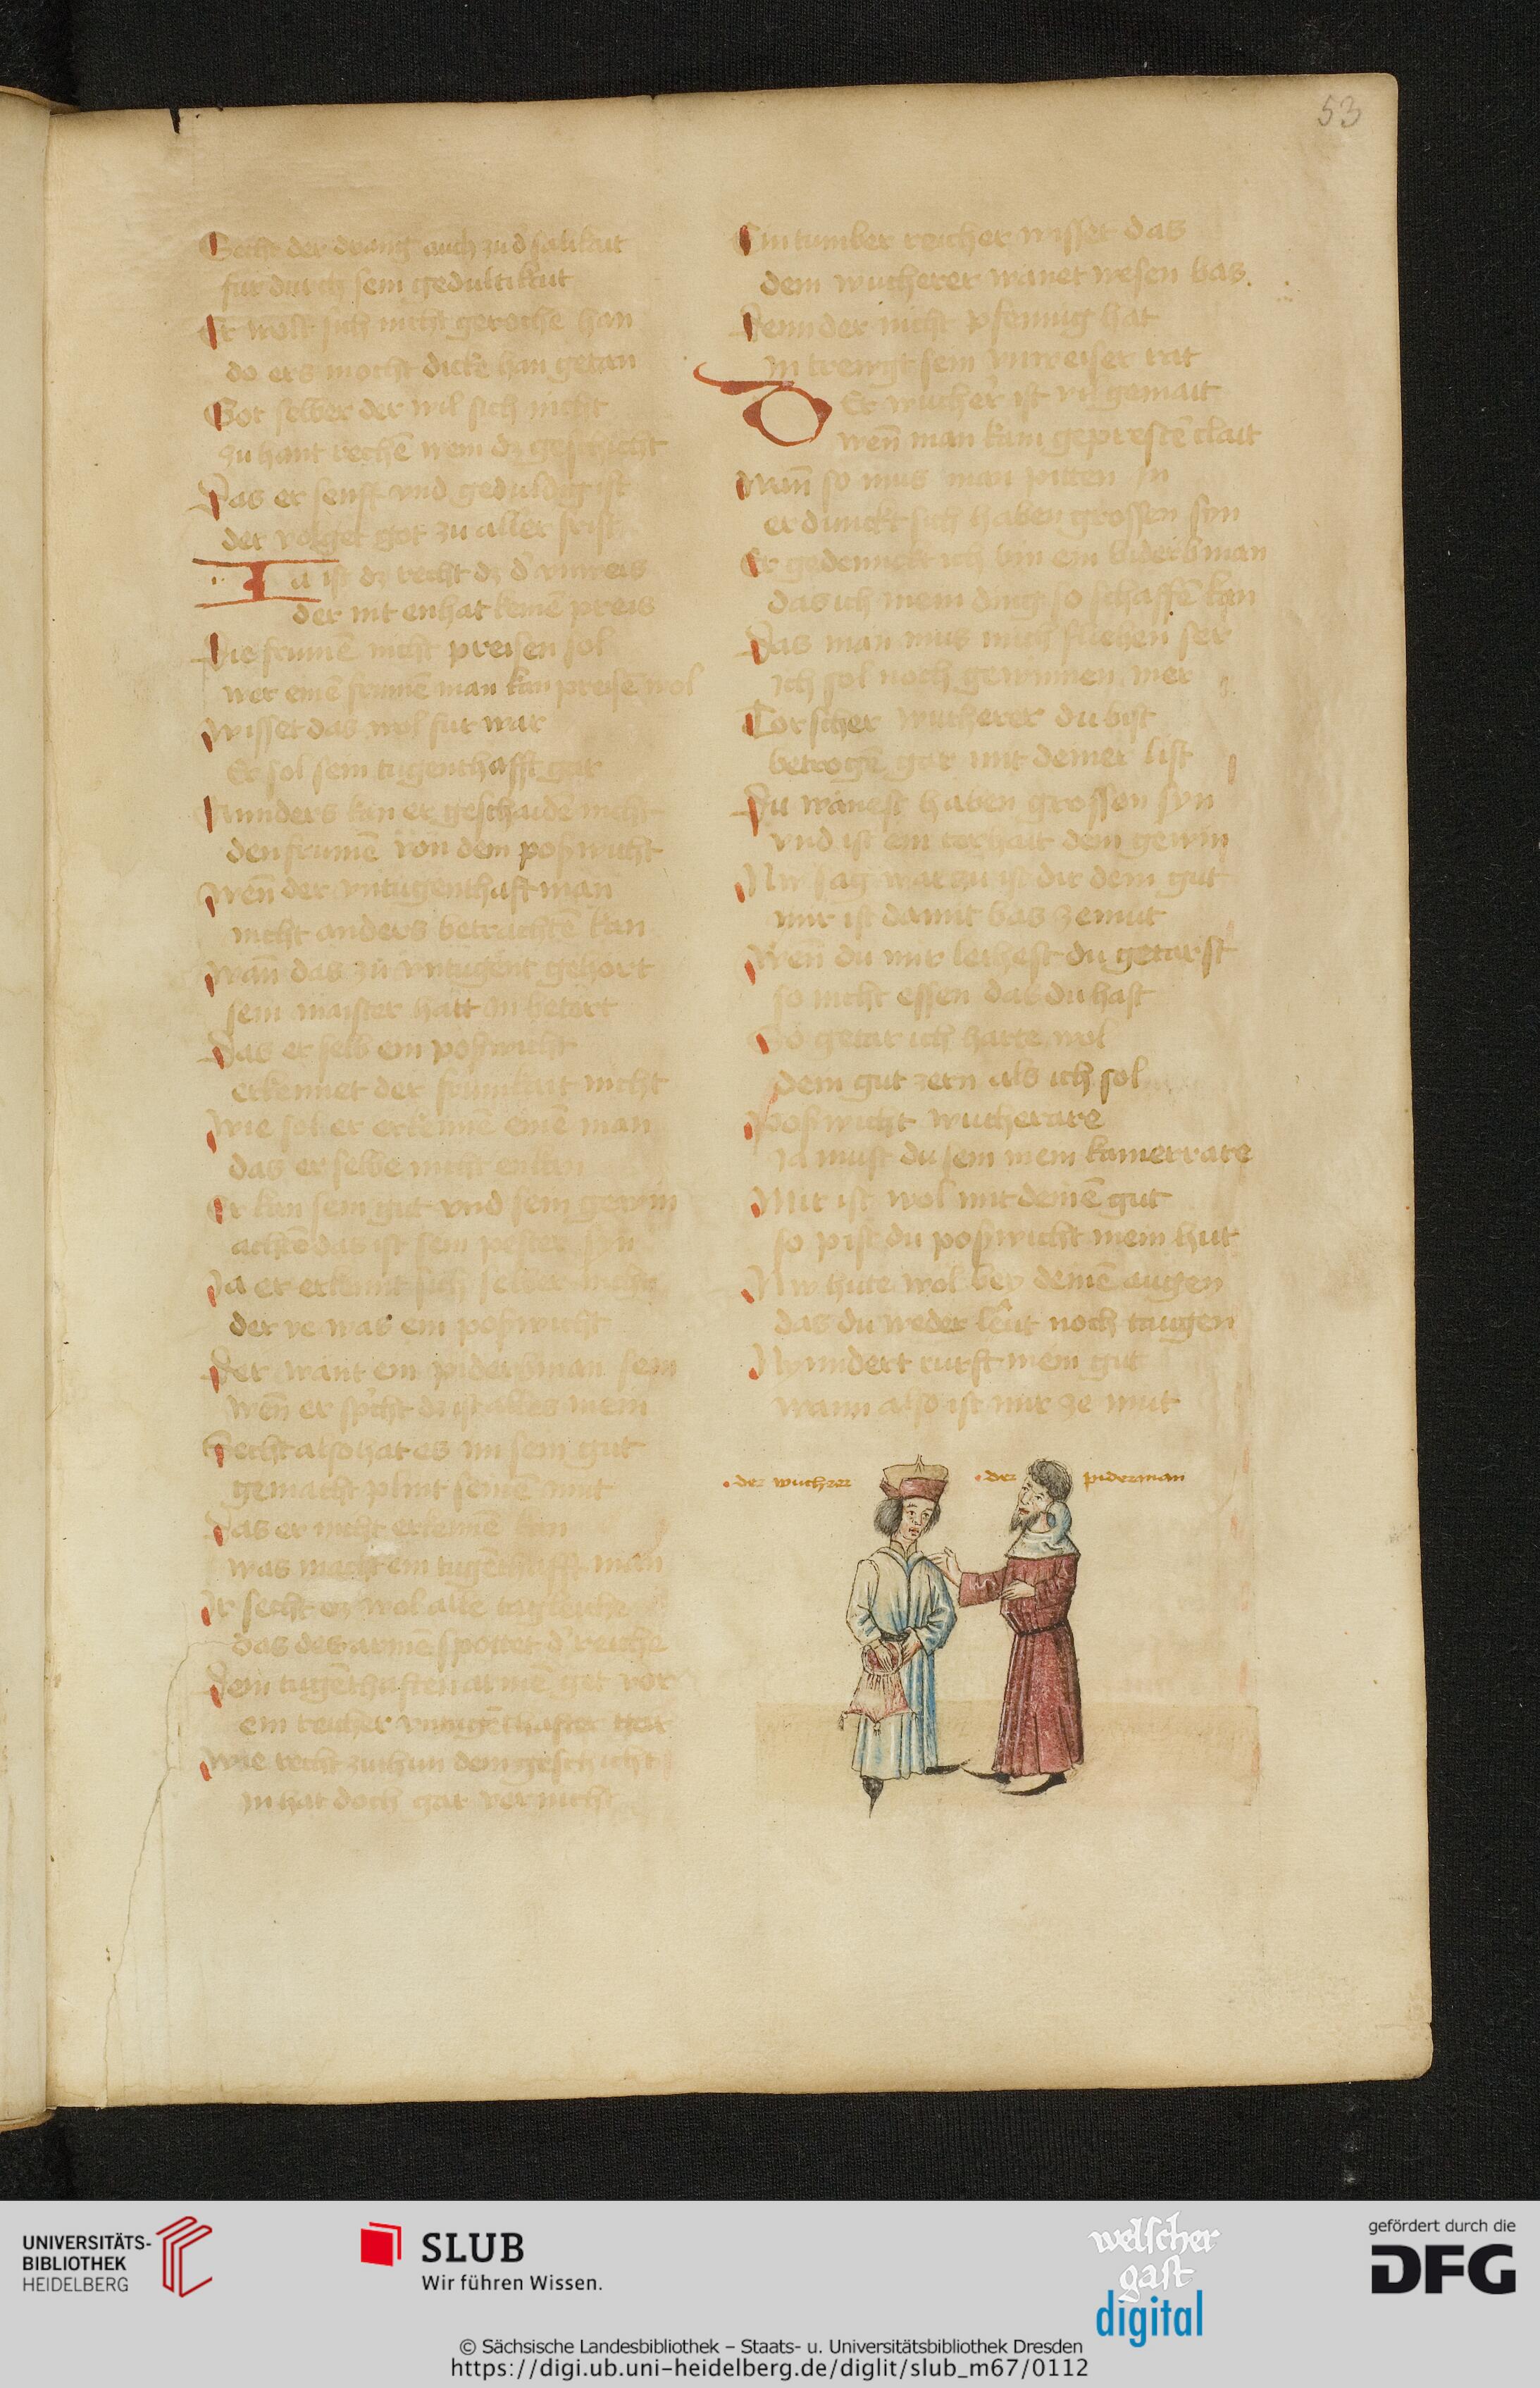 53
Secht der drang auch zu d salikait
fur durch sein gedultikait
Er wolt sich nicht geroche han
do ers mocht dicke han getan
Got selber der wil sich nicht
zu hant rechē wem dz geschicht
Das er senfft vnd geduldig ist
der volget got zu aller frist
Ia ist dz recht dz d' vnweis
der nit enhat keinē preis
Die frumē nicht preisen sol
wer einē frumē man kan preisē wol
Wisset das wol fur war
Er sol sein tugenthafft gar
Annders kan er geschaidē nicht
den frumē von dem poßwicht
Wen̄ der vntugenthaft man
nicht anders betrachtē kan
Wan̄ das zu vntugent gehort
sein maister hatt in betort
Das er selb ein poßwicht
erkennet der frumkait nicht
Wie sol er erkennē einē man
das er selbe nicht enkan
Er kan sein gut vnd sein gewin
achtē das ist sein pester syn
Ja er erkennt sich selber nicht
der ye was ein poßwicht
Der want ein piderbman sein
wen̄ er spricht dz ist alles mein
Secht also hat es im sein gut
gemacht plint seinē mut
Das er nicht erkennē kan
was macht ein tugēthafft man
Ir secht ez wol alle tagleiche
das des armē spottet d' reiche
Dem tugēthaften armē get vor
ein reicher vntugēthafter tor
Wie recht zuhun dem geschicht
in hat doch gar vernicht
Ein tumber reicher wisset das
dem wucherer wanet wesen bas.
Denn der nicht pfennig hat
In trengt sein vnweiser rat
Der wucher' ist vil gemait
wen̄ man kim geprestē clait
Wan̄ so mus man pitten in
er dunckt sich haben grossen syn
Er gedenckt ich bin ein biderbman
das ich mein ding so schaffē kan
Das man mus mich fliehen ser
ich sol noch gewinnen mer
Torscher wucherer du bist
betrogē gar mit deiner list
Du wanest haben grossen syn
vnd ist ein torhait dein gewin
Nw sag warzu ist dir dein gut
mir ist damit bas zemut
Wen̄ du mir leihest du getarst
so nicht essen das du hast
So getar ich harte wol
Dein gut zern als ich sol
Poßwicht wucherare
Ja must du sein mein kamerrare
Mir ist wol mit deinē gut
so pist du poßwicht mein hut
Nw hute wol bey deinē augen
das du weder leut noch taugen
Nynndert rurst mein gut
wann also ist mir ze mut
der wuchrer
der piderman
UNIVERSITÄTS-
BIBLIOTHEK
HEIDELBERG
SLUB
Wir führen Wissen.
welscher
gast
digital
gefördert durch die
DFG
© Sächsische Landesbibliothek – Staats- u. Universitätsbibliothek Dresden
https://digi.ub.uni-heidelberg.de/diglit/slub_m67/0112